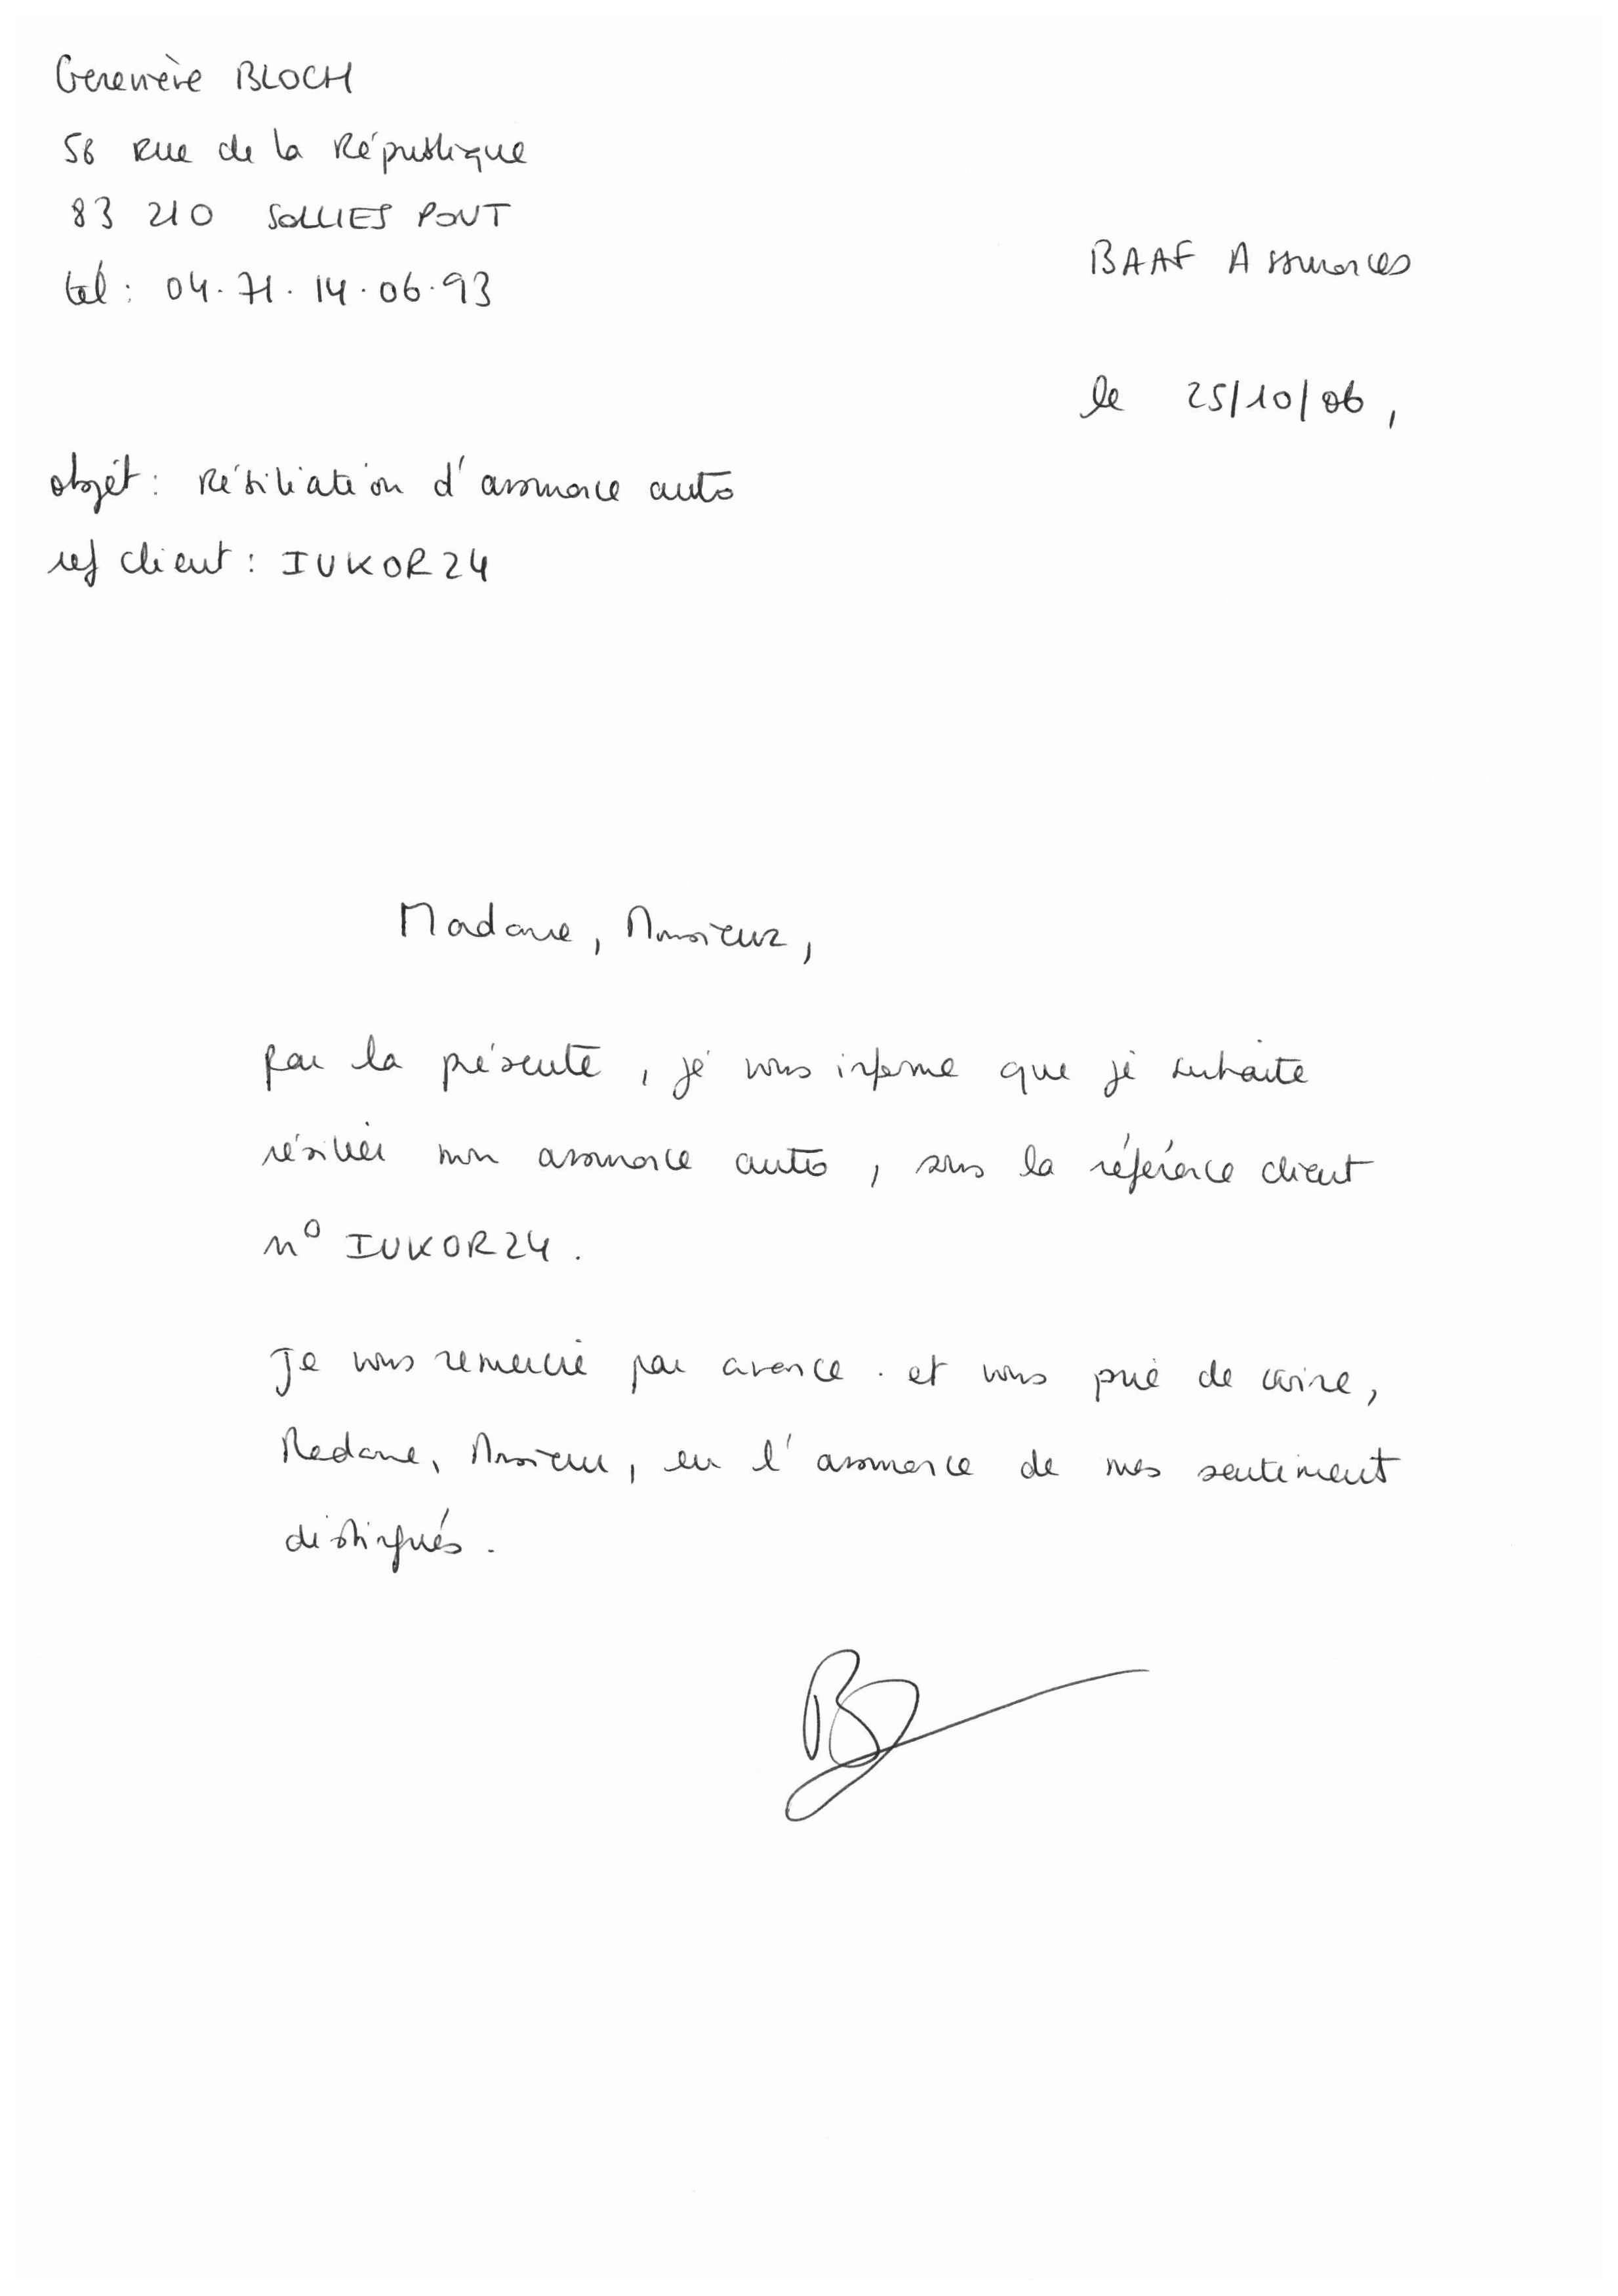 Geneviève BLOCH
56 Rue de la République
83 210 SOLLIES PONT
tél : 04.71.14.06.93
BAAF Assurances
le 25/10/06,
objet : Résiliation d'assurance auto
ref client : IUKOR24
Madame, Monsieur,
par la présente, je vous informe que je souhaite
résilier mon assurance auto, sous la référence client
n° IUKOR24.
Je vous remercie par avance. et vous prie de croire,
Madame, Monsieur, en l'assurance de mes sentiment
distingués.